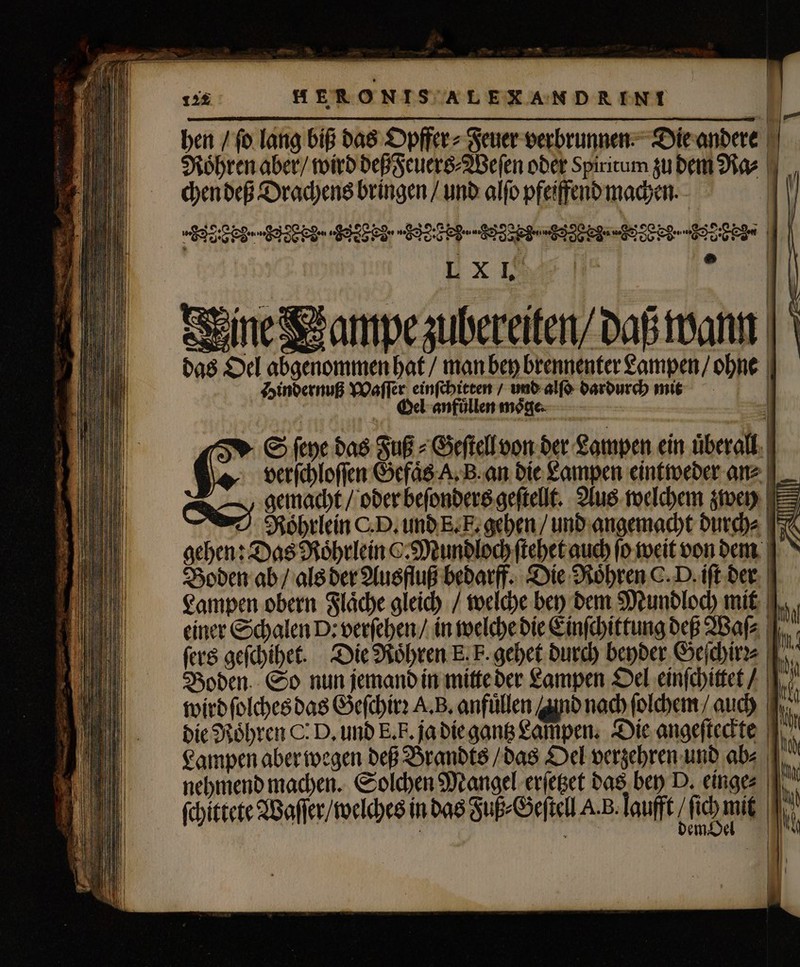 122 HERONIS ALEXANDRINI
hen / ſo lang biß das Opffer⸗Feuer verbrunnen. Die andere
Roͤhren aber / wird deß Feuers⸗Weſen oder Spiritum zu dem Ra⸗
chen deß Drachens bringen / und alſo pfeiffend machen.
LXI.
Eine Lampe zubereiten / daß wann
das Oel abgenommen hat / man bey brennenter Lampen / ohne
Hindernuß Waſſer einſchitten / und alſo dardurch mit
Oel anfuͤllen moͤge.
ES ſeye das Fuß⸗Geſtell von der Lampen ein uͤberall
verſchloſſen Gefaͤs A. B. an die Lampen eintweder an⸗
gemacht / oder beſonders geſtellt. Aus welchem zwey
Roͤhrlein C. D. und E. F. gehen / und angemacht durch⸗
gehen: Das Roͤhrlein C. Mundloch ſtehet auch ſo weit von dem
Boden ab / als der Ausfluß bedarff. Die Roͤhren C. D. iſt der
Lampen obern Flaͤche gleich / welche bey dem Mundloch mit
einer Schalen D: verſehen / in welche die Einſchittung deß Waſ⸗
ſers geſchihet. Die Roͤhren E. F. gehet durch beyder Geſchirꝛ⸗
Boden. So nun jemand in mitte der Lampen Oel einſchittet /
wird ſolches das Geſchirꝛ A. B. anfuͤllen / und nach ſolchem / auch
die Roͤhren C. D. und E. F. ja die gantz Lampen. Die angeſteckte
Lampen aber wegen deß Brandts / das Oel verzehren und ab⸗
nehmend machen. Solchen Mangel erſetzet das bey D. einge⸗
ſchittete Waſſer / welches in das Fuß⸗Geſtell A. B. laufft / ſich mit
dem Oel